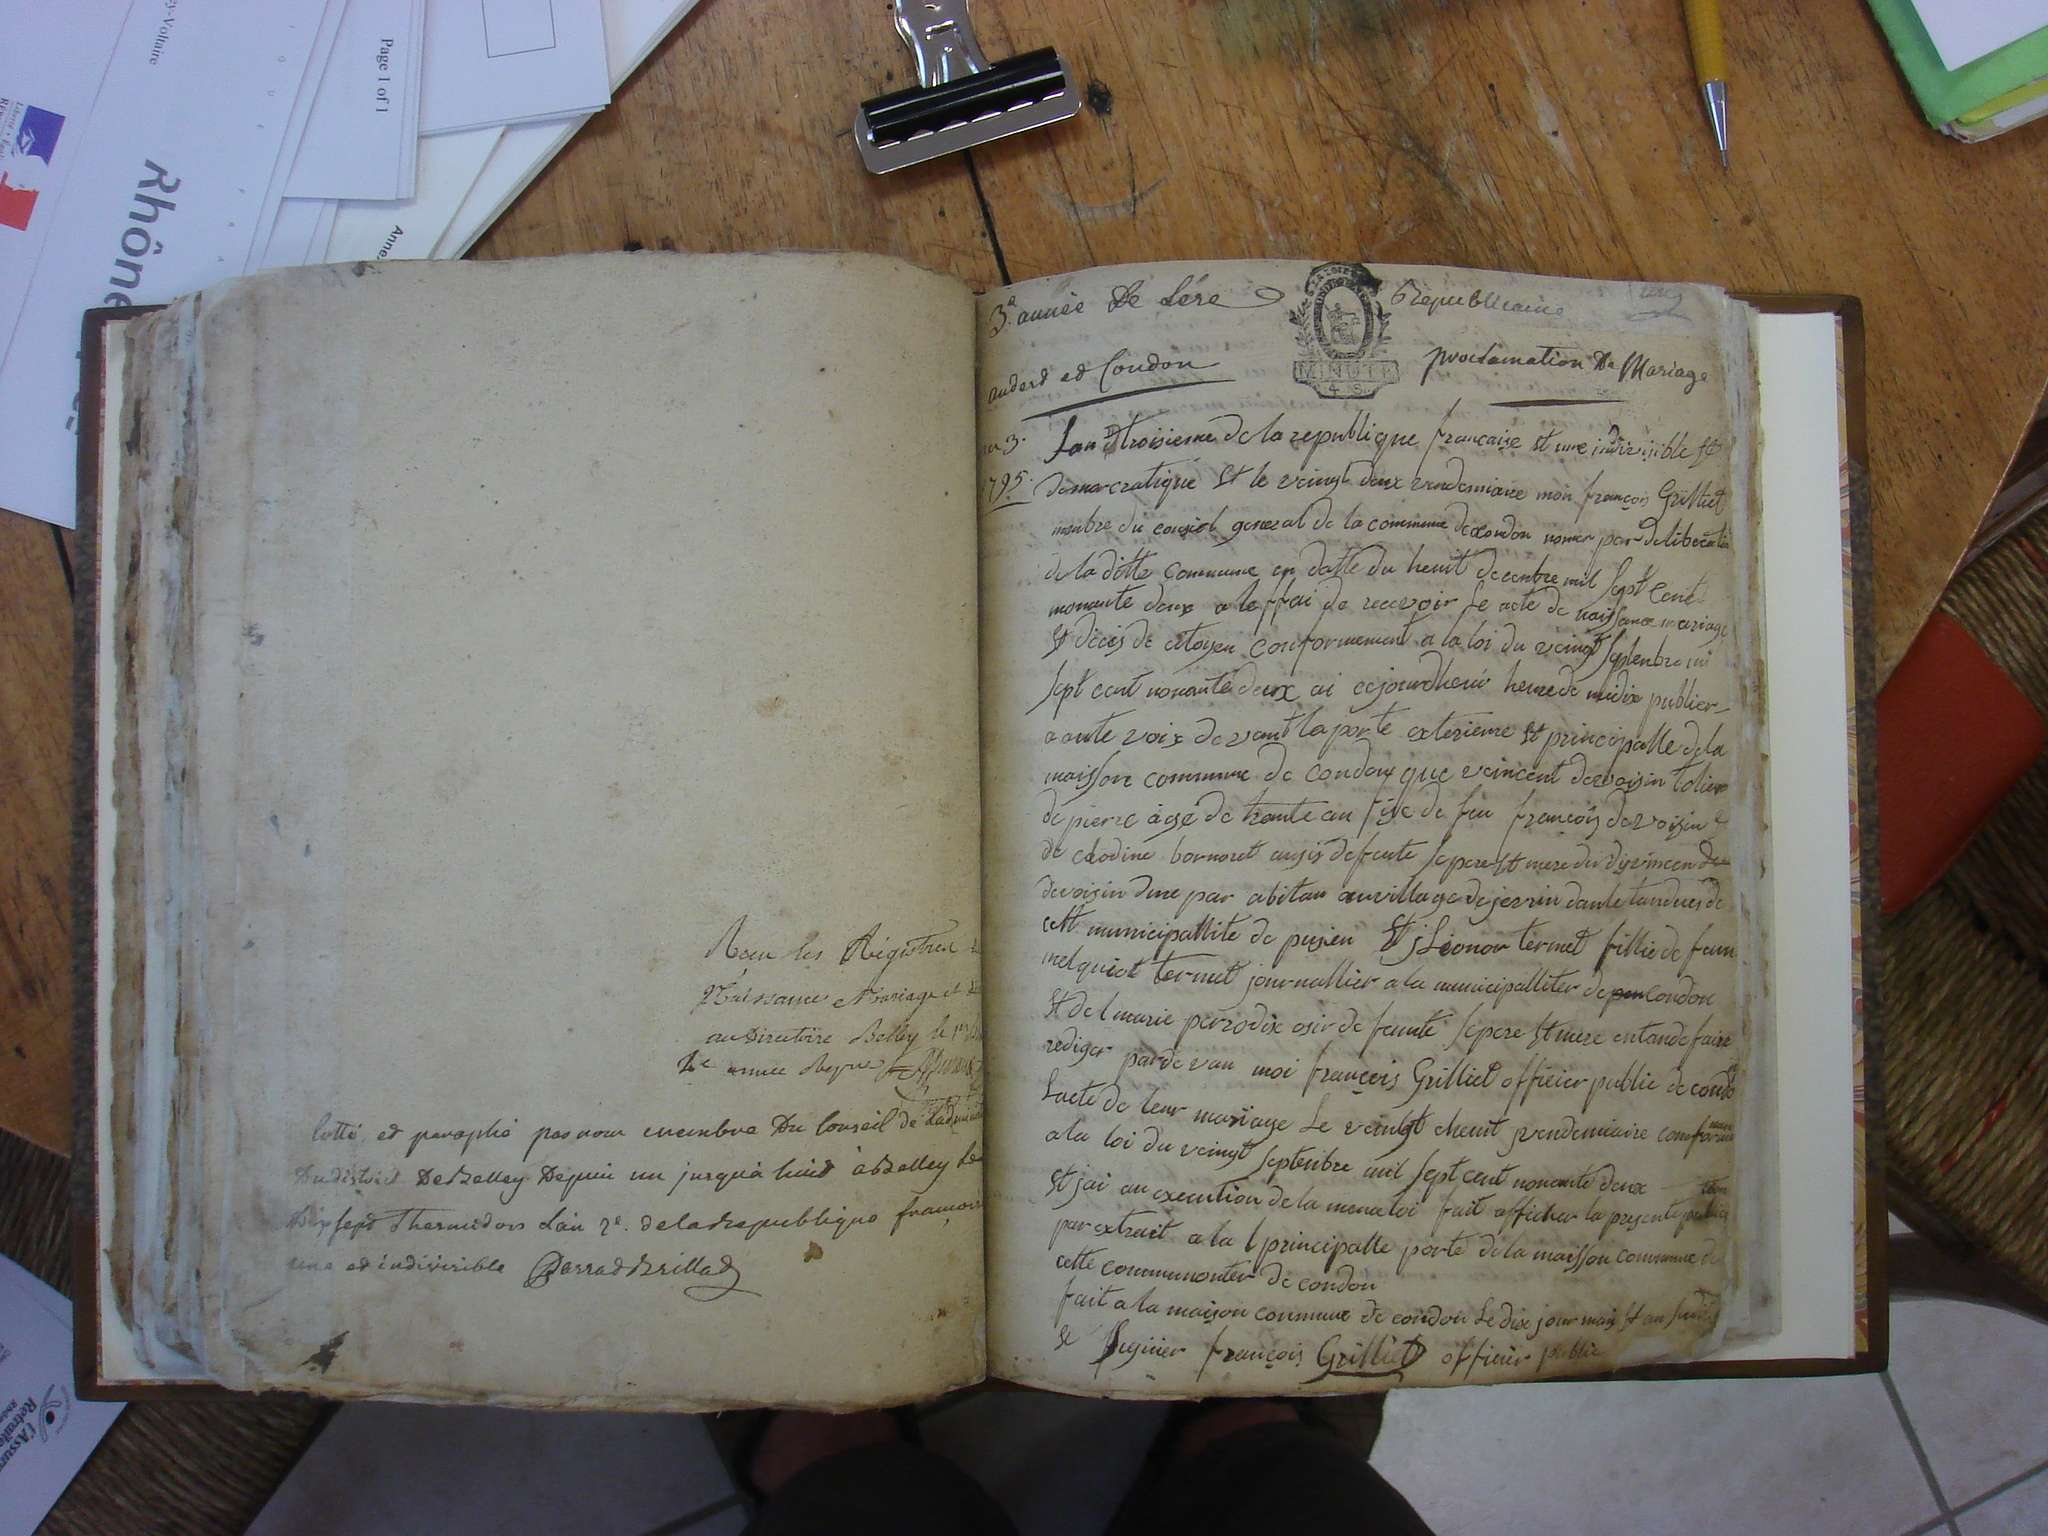 ey-Voltaire
Page 1 of 1
Rhône
Anne
l'Assur
Retraite
Rhône
Reçu les Régistres
Naissance Mariage et
au Directoire Belley le 1er
2e année Repue
Cotté et paraphé par nous membre Du Conseil de
Du district De Belley Depuis un jusqu'à huit à Belley le
Dix sept Thermidors L'an 2e. de la Republique françoise
une et indivisible
3e. année De Lére Republicaine
andert et Condon proclamation De Mariage
MINUTE
4. S.
an 3.
1795.
Lan troisieme de la republique francaise et une indivisible et
democratique et le veingt deux vendemiaire moi françois Grilliet
menbre du conseil general de la commune de condon nomer par deliberation
de la ditte commune en datte du heuit decenbre mil sept cent
nonante deux a leffai de recevoir le acte de naissance mariage
et décés de citoyen conformement a la loi du veingt septenbre mil
sept cent nonante deux ai cejourdheui heure de midix publier
a aute voix devant la porte exterieure et principalle de la
maisson commune de condon que veincent devoisin
de pierre àgé de trante an fis de feu françois devoisin et
de clodine bornaret
devoisin au village de
cette municipallité de pugieu et Leonor termet fillie de feu
melquiot termet journallier a la municipalliter de condon
et de marie perrodix
rediger par de van moi françois Grilliet officier public de condon
Lacte de leur mariage Le veingt eheuit vendemiaire conformement
a la loi du veingt septenbre mil sept cent nonante deux
et jai au execution de la mene loi fait afficher la presente
par extrait a la principalle porte de la maisson commune de
cette de condon
fait a la maison commune de condon Le dix jour mois et an susdit
et signier françois Grilliet officier public